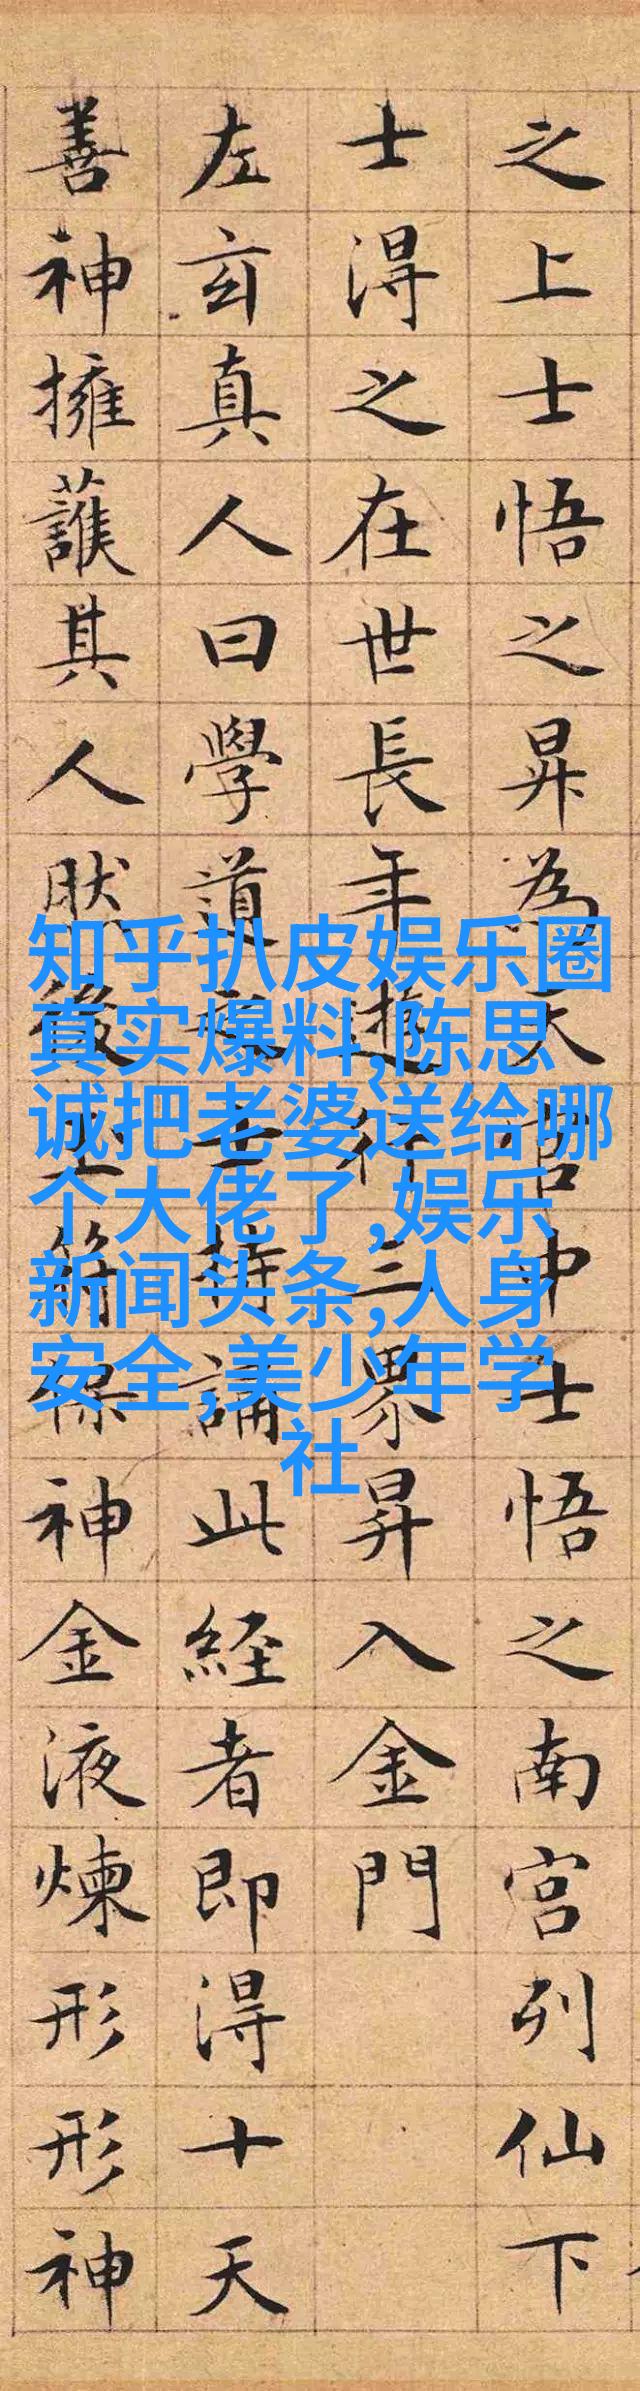 之上士悟之昇為天官中士悟之南宮列仙下
士得之在世長年遊行三界昇入金門
左玄真人曰學道之士持誦此經者即得十天
善神擁護其人然後玉符保神金液煉形形神
知乎扒皮娱乐圈
真实爆料,陈思
诚把老婆送给哪
个大佬了,娱乐
新闻头条,人身
安全,美少年学
社